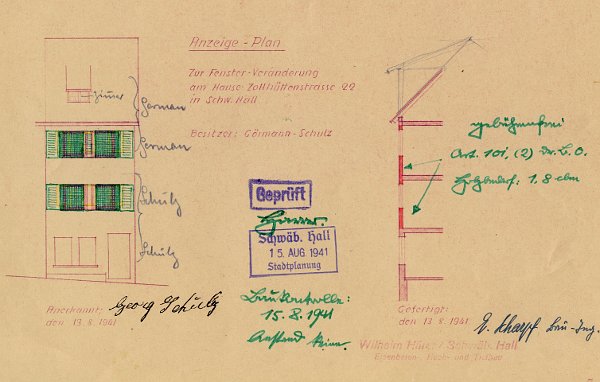 Anzeige - Plan
Zur Fenster-Veränderung
am Hause Zollhüttenstrasse 22
in Schw. Hall
Besitzer: Görmann-Schulz
German
German
Schulz
Schulz
gebührenfrei
Art. 101, (2)
1.8 cbm
Geprüft
Schwäb. Hall
15. AUG. 1941
Stadtplanung
Baukontrolle:
15.8.1941
Anstand keine.
Anerkannt:
den 13.8.1941
Georg Schulz
Gefertigt:
den 13.8.1941
E. Scharpf Bau-Ing.
Schwäb. Hall
Eisenbeton-, Hoch- und Tiefbau